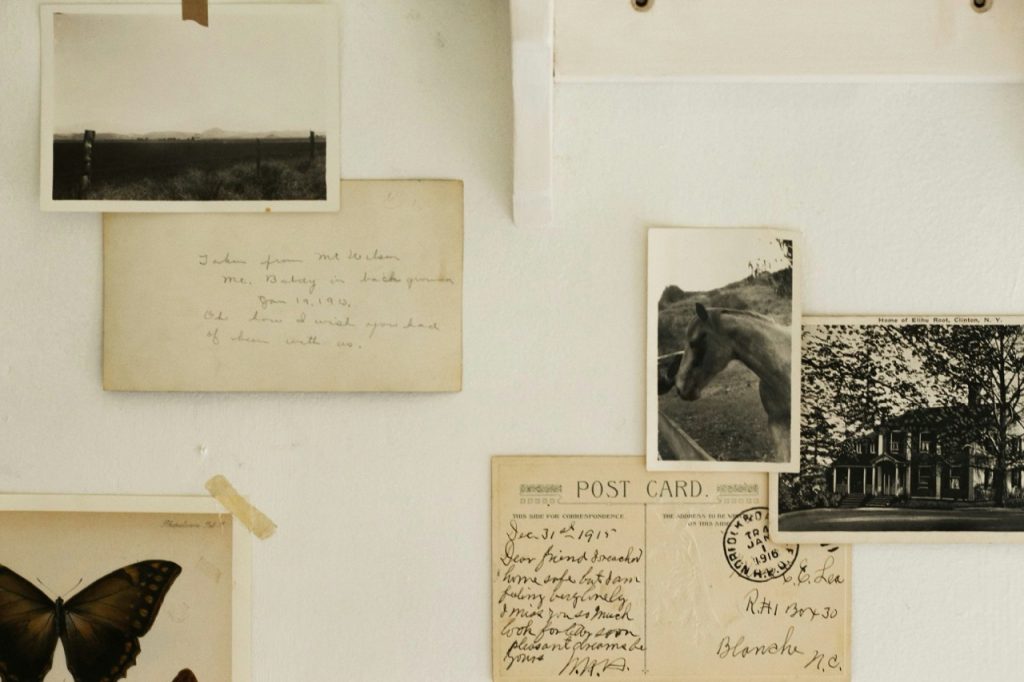 Taken from Mt Wilson
Mt. Baldy in background
Jan 19, 191
Oh how I wish you had
of been with us.
Home of Elihu Root, Clinton, N. Y.
POST CARD.
THIS SIDE FOR CORRESPONDENCE.
THE ADDRESS TO BE
ON THIS SIDE
Dec 31st 1915
Dear friend I reached
home safe but I am
feling very lonely
I miss you so much
look for
soon
pleasant dreams
yours
NORFOLK
TR
JAN
1
1916
R.P.O.
C. E. Lea
R.#1 Box 30
Blanche
N.C.